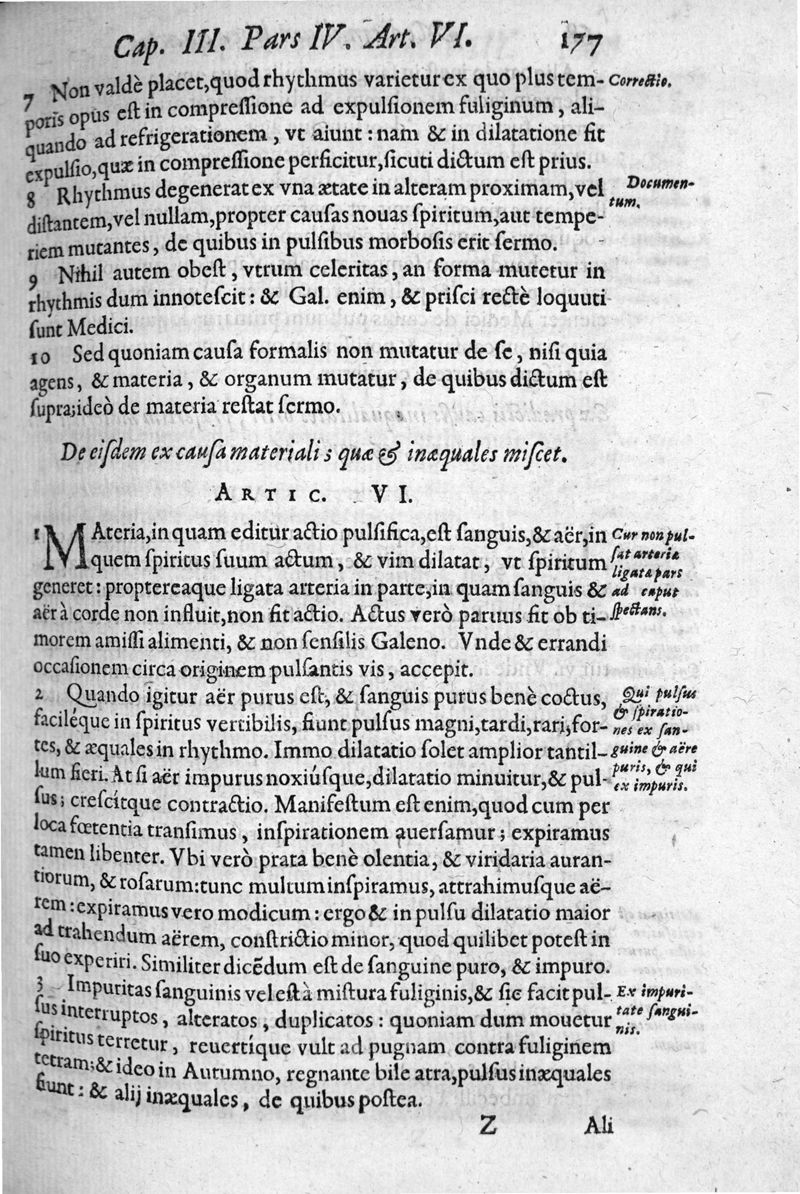 Cap. III. Pars IV. Art. VI. 177
7 Non valdè placet,quod rhythmus varietur ex quo plus tem- Correctio.
poris opus eſt in compreſſione ad expulſionem fuliginum, ali-
quando ad refrigerationem, vt aiunt: nam & in dilatatione fit
expulſio,quæ in compreſſione perficitur,ſicuti dictum eſt prius.
8 Rhythmus degenerat ex vna ætate in alteram proximam,vel Documen-
diſtantem,vel nullam,propter cauſas nouas ſpiritum,aut tempe- tum.
riem mutantes, de quibus in pulſibus morboſis erit ſermo.
9 Nihil autem obeſt, vtrum celeritas, an forma mutetur in
rhythmis dum innoteſcit: & Gal. enim, & priſci rectè loquuti
ſunt Medici.
10 Sed quoniam cauſa formalis non mutatur de ſe, niſi quia
agens, & materia, & organum mutatur, de quibus dictum eſt
ſupra;ideò de materia reſtat ſermo.
De eiſdem ex cauſa materiali; quæ & inæquales miſcet.
ARTIC. VI.
1 MAteria,in quam editur actio pulſifica,eſt ſanguis,& aër,in Cur non pul-
quem ſpiritus ſuum actum, & vim dilatat, vt ſpiritum ſat arteria
generet: proptereaque ligata arteria in parte,in quam ſanguis & ligata pars
aër à corde non influit,non fit actio. Actus verò paruus fit ob ti- ad caput
morem amiſſi alimenti, & non ſenſilis Galeno. Vnde & errandi ſpectans.
occaſionem circa originem pulſantis vis, accepit.
2 Quando igitur aër purus eſt, & ſanguis purus benè coctus, Qui pulſus
faciléque in ſpiritus vertibilis, fiunt pulſus magni,tardi,rari,for- & ſpiratio-
tes, & æquales in rhythmo. Immo dilatatio ſolet amplior tantil- nes ex ſan-
lum fieri. At ſi aër impurus noxiúſque,dilatatio minuitur,& pul- guine & aëre
ſus; creſcitque contractio. Manifeſtum eſt enim,quod cum per puris, & qui
loca fœtentia tranſimus, inſpirationem auerſamur; expiramus ex impuris.
tamen libenter. Vbi verò prata benè olentia, & viridaria auran-
tiorum, & roſarum:tunc multum inſpiramus, attrahimuſque aë-
rem: expiramus vero modicum: ergo & in pulſu dilatatio maior
ad trahendum aërem, conſtrictio minor, quod quilibet poteſt in
ſuo experiri. Similiter dicẽdum eſt de ſanguine puro, & impuro.
3 Impuritas ſanguinis vel eſt à miſtura fuliginis,& ſic facit pul- Ex impuri-
ſus interruptos, alteratos, duplicatos: quoniam dum mouetur tate ſangui-
ſpiritus terretur, reuertique vult ad pugnam contra fuliginem nis.
tetram;& ideo in Autumno, regnante bile atra,pulſus inæquales
fiunt: & alij inæquales, de quibus poſtea.
Z Ali